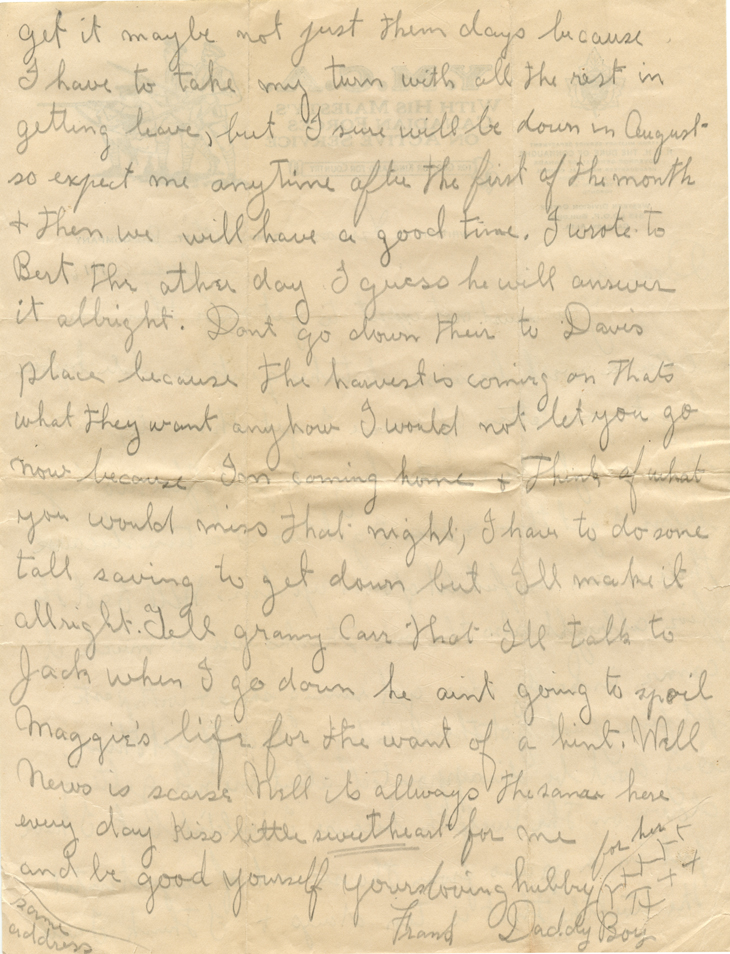 get it maybe not just them days because
I have to take my turn with all the rest in
getting leave, but I sure will be down in August
so expect me anytime after the first of the month
+ then we will have a good time. I wrote to
Bert the other day I guess he will answer
it allright. Dont go down their to Davis
place because the harvest is coming on thats
what they want anyhow I would not let you go
now because I'm coming home + Think of what
you would miss that night, I have to do some
tall saving to get down but I'll make it
allright. Tell granny Carr that I'll talk to
Jack when I go down he aint going to spoil
Maggie's life for the want of a hint. Well
News is scarse Well it allways the same here
every day Kiss little sweetheart for me
and be good yourself yours loving hubby
for her
Frank Daddy Boy
same
address
WITH HIS MAJESTY'S